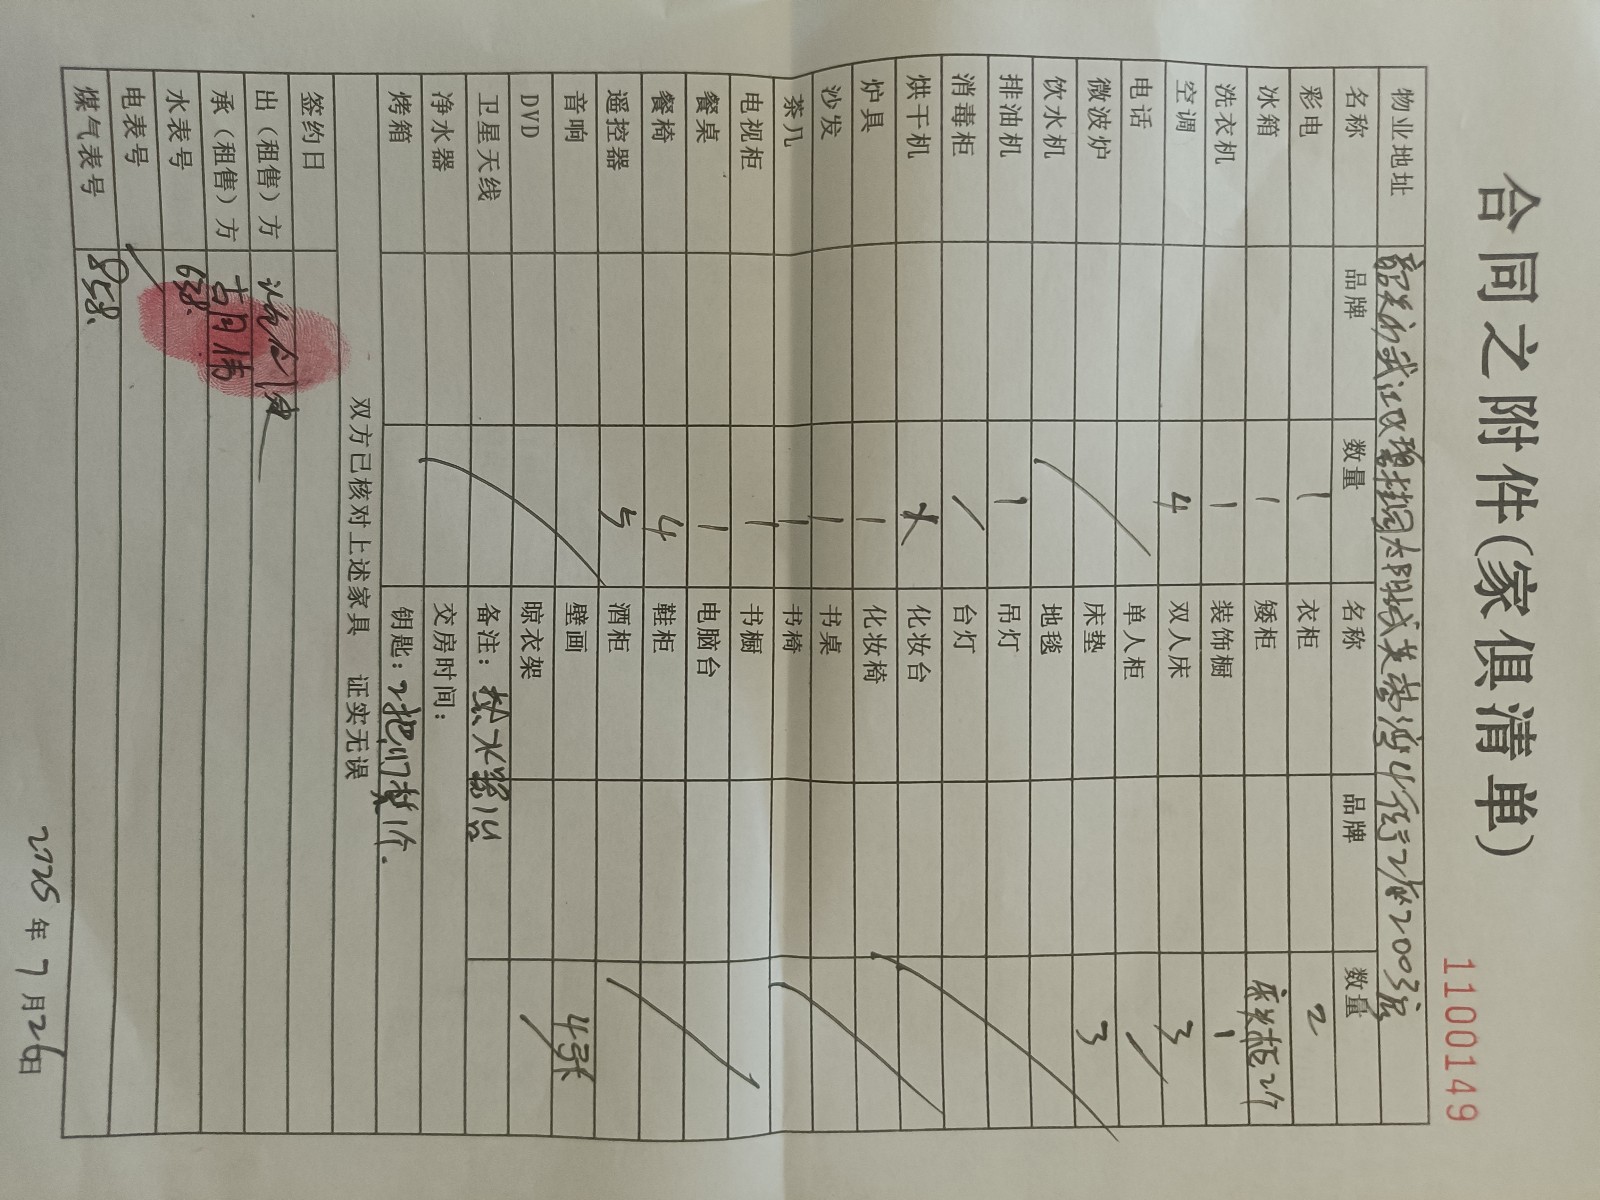 合同之附件(家俱清单)
1100149
物业地址 韶关市武江区 太阳城芙蓉湾4街2座2003房
名称 品牌 数量 名称 品牌 数量
彩电 1 衣柜 2
冰箱 1 矮柜 床头柜2个
洗衣机 1 装饰橱 1
空调 4 双人床 3
电话 单人柜
微波炉 床垫 3
饮水机 地毯
排油机 1 吊灯
消毒柜 台灯
烘干机 化妆台
炉具 1 化妆椅
沙发 1 书桌
茶几 1 书椅
电视柜 1 书橱
餐桌 1 电脑台
餐椅 4 鞋柜
遥控器 5 酒柜
音响 壁画 4张
DVD 晾衣架
卫星天线 备注:热水器1台
净水器 交房时间:
烤箱 钥匙:2把门 1个.
双方已核对上述家具 证实无误
签约日
出(租售)方
承(租售)方
水表号 638.
电表号
煤气表号 858.
2025年7月26日